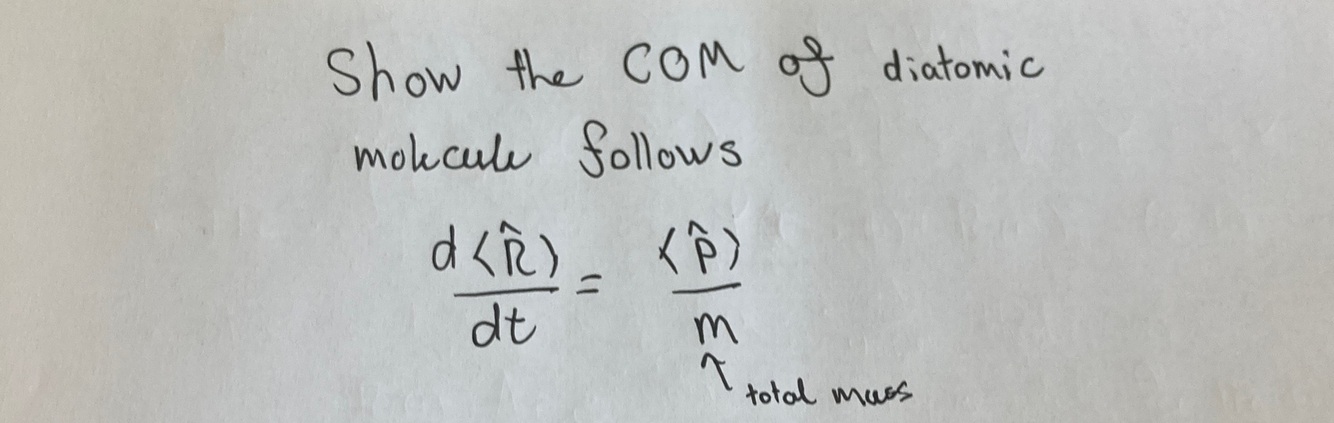 Show the COM of diatomic
molecule follows
d⟨R̂⟩/dt = ⟨p̂⟩/m
↑ total mass